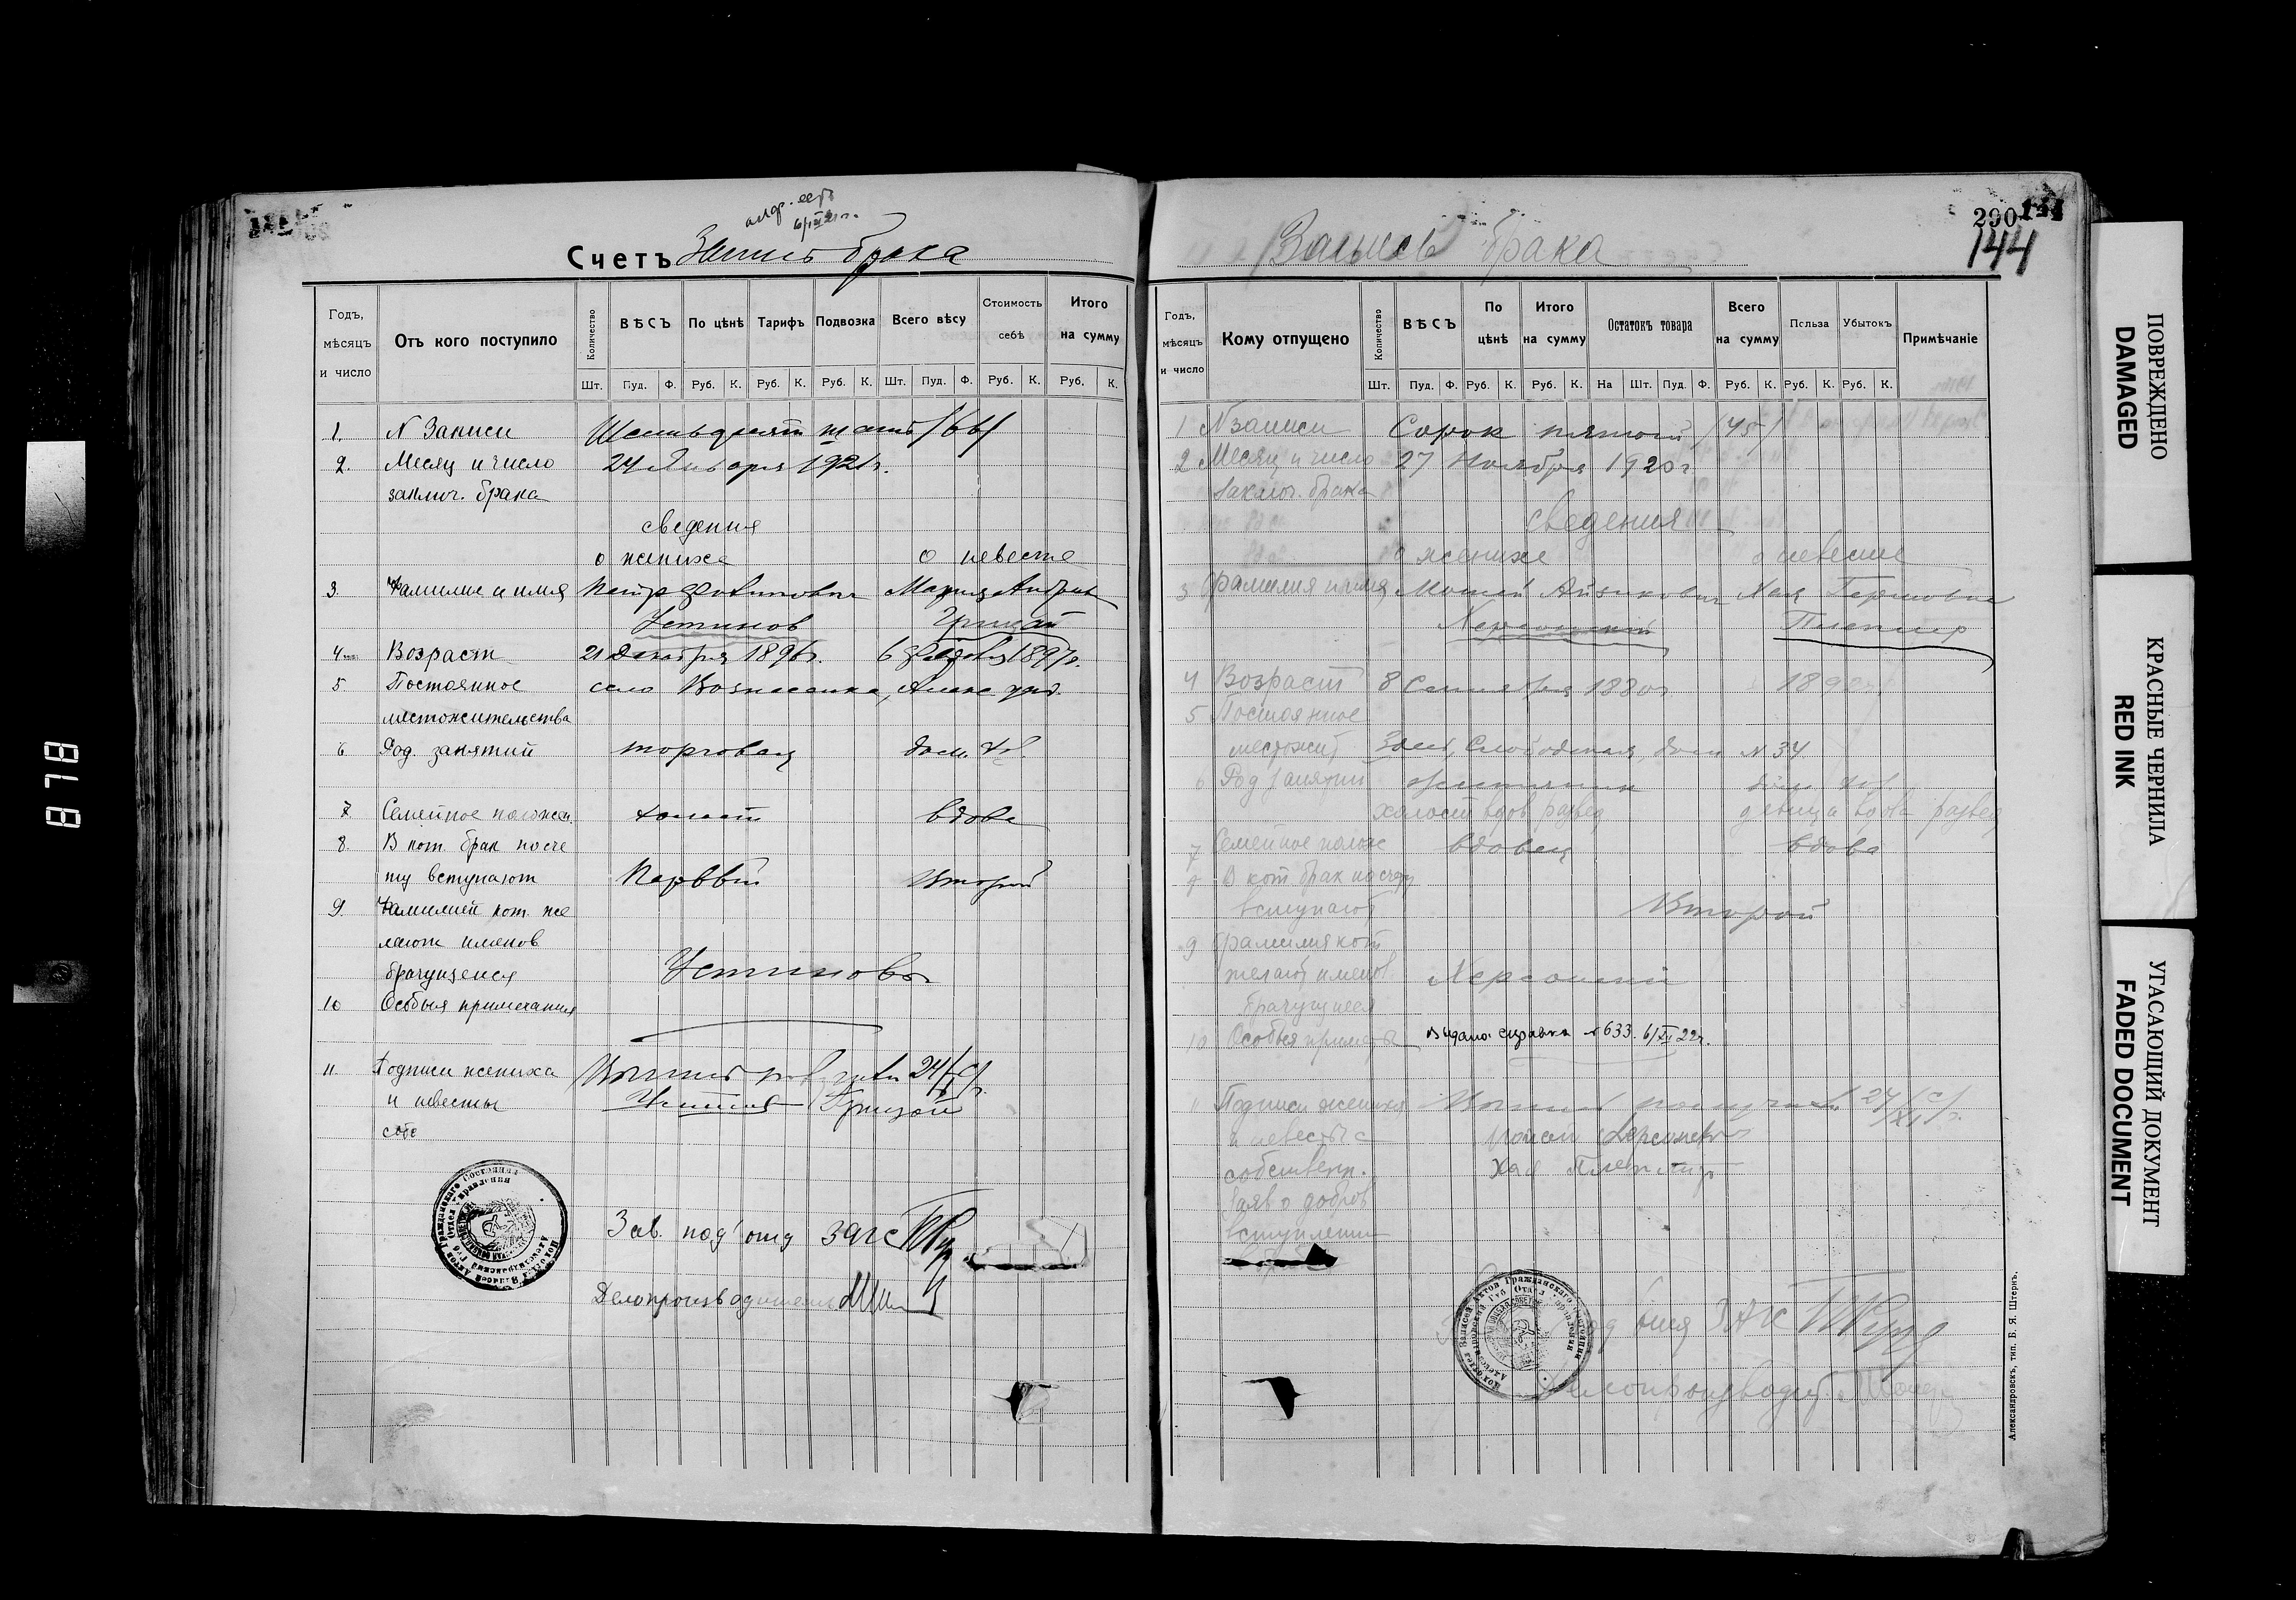 алф. есть
Счетъ Запись брака
Годъ, мѣсяцъ и число
Отъ кого поступило
Количество
ВѢСЪ
По цѣнѣ
Тарифъ
Подвозка
Всего вѣсу
Стоимость себѣ
Итого на сумму
Шт. Пуд. Ф. Руб. К. Руб. К. Руб. К. Шт. Пуд. Ф. Руб. К. Руб. К.
1. N Записи Шестьдесят шесть /66/
2. Месяц и число 24 Января 1921 г.
заключ. брака
сведения
о женихе о невесте
3. Фамилие и имя Петр Мария
Устинов Грицай
4. Возраст 21 Декабря 1896 г. 6 1897 г.
5 Постоянное село Вознесенка, Алекс. уезд.
местожительства
6 Род. занятий торговец дом. хоз.
7 Семейное положен. холост вдова
8. В кот. брак по сче
ту вступают Первый Второй
9. Фамилией кот. же
лают именов
брачущиеся Устиновы
10 Особыя примечания
11. Подписи жениха 24/I
и невесты Устинов Грицай
соб
Зав. под'отд ЗАГС
Делопроизводитель
290
144
Запись брака
Годъ, мѣсяцъ и число
Кому отпущено
Количество
ВѢСЪ
По цѣнѣ
Итого на сумму
Остатокъ товара
Всего на сумму
Польза
Убытокъ
Примѣчаніе
Шт. Пуд. Ф. Руб. К. Руб. К. На Шт. Пуд. Ф. Руб. К. Руб. К. Руб. К.
1 N записи Сорок пятый /45/
2 Месяц и число 27 Ноября 1920 г.
заключ. брака
сведения
о женихе о невесте
3 Фамилия и имя Мошей Айзикович Хая
Херсонский
4 Возраст 8 Сентября 1880 г.
5 Постоянное
местожит. Здесь, Слободская, дом N 34
6 Род занятий дом. хоз.
холост вдов развед девица вдова развед
7 Семейное полож вдовец вдова
8 В кот. брак по счету
вступают Второй
9 Фамилия кот
желают именов. Херсонский
брачущиеся
10 Особыя примеч Выдана справка № 633. 6/XII 22 г.
11 Подписи жениха 27/XI
и невесты с Херсонский
собственн. Хая
заяв о добров
вступлении
под'отд ЗАГС
Делопроизводит.
Александровскъ, тип. Б. Я. Штернъ.
ПОВРЕЖДЕНО
DAMAGED
КРАСНЫЕ ЧЕРНИЛА
RED INK
УГАСАЮЩИЙ ДОКУМЕНТ
FADED DOCUMENT
878